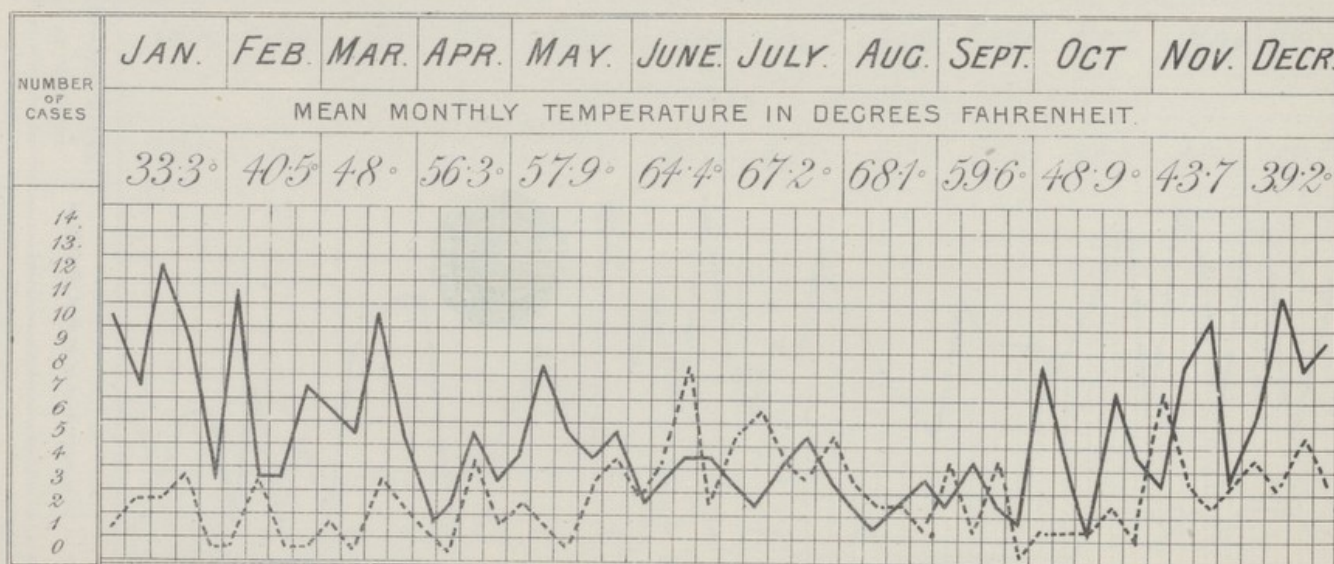 JAN. FEB. MAR. APR. MAY. JUNE. JULY. AUG. SEPT. OCT NOV. DECR.
NUMBER
OF
CASES
MEAN MONTHLY TEMPERATURE IN DEGREES FAHRENHEIT.
33·3° 40·5° 48° 56·3° 57·9° 64·4° 67·2° 68·1° 59·6° 48·9° 43·7 39·2°
14.
13.
12
11
10
9
8
7
6
5
4
3
2
1
0